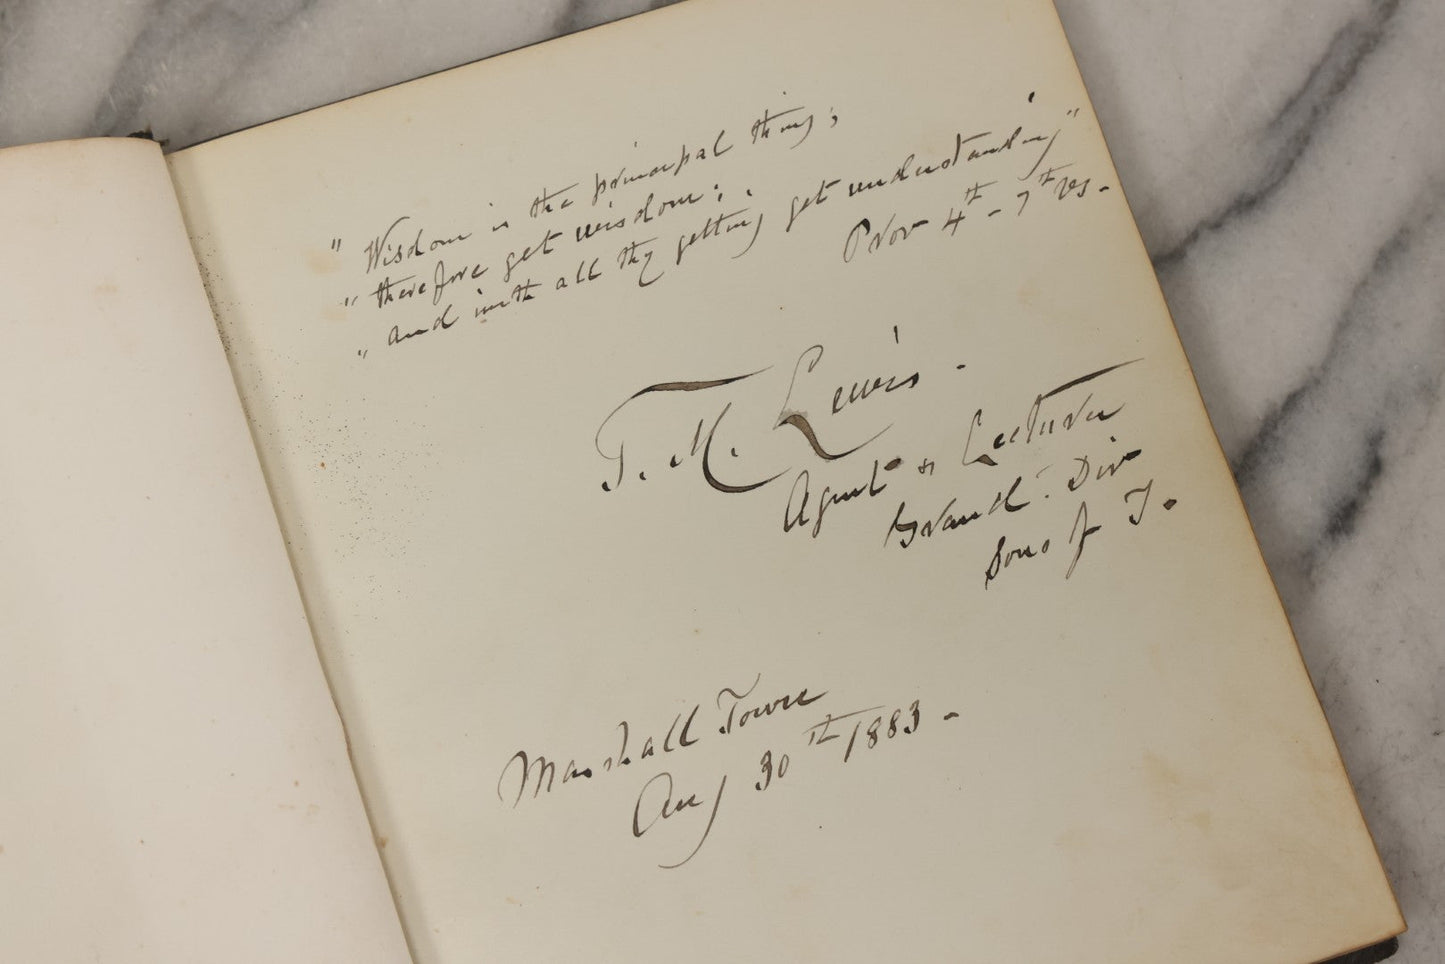 " Wisdom is the principal thing;
" therefore get wisdom:
" and with all thy getting get understanding"
Prov 4th - 7th vs.
T. M. Lewis.
Agent & Lecturer
Grand. Div
Sons of T.
Marshall Town
Aug 30th 1883 -